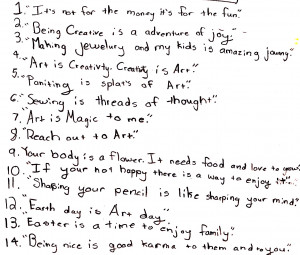 1. "It's not for the money it's for the fun."
2. "Being Creative is a adventure of joy."
3. "Making jewelury and my kids is amazing jouny."
4. "Art is Creativty. Creativty is Art."
5. "Paniting is splats of Art."
6. "Sewing is threads of thought."
7. "Art is Magic to me."
8. "Reach out to Art."
9. "Your body is a flower. It needs food and love to grow."
10. "If your not happy there is a way to enjoy it."
11. "Shaping your pencil is like sharping your mind."
12. "Earth day is Art day."
13. "Easter is a time to enjoy family."
14. "Being nice is good karma to them and to you."